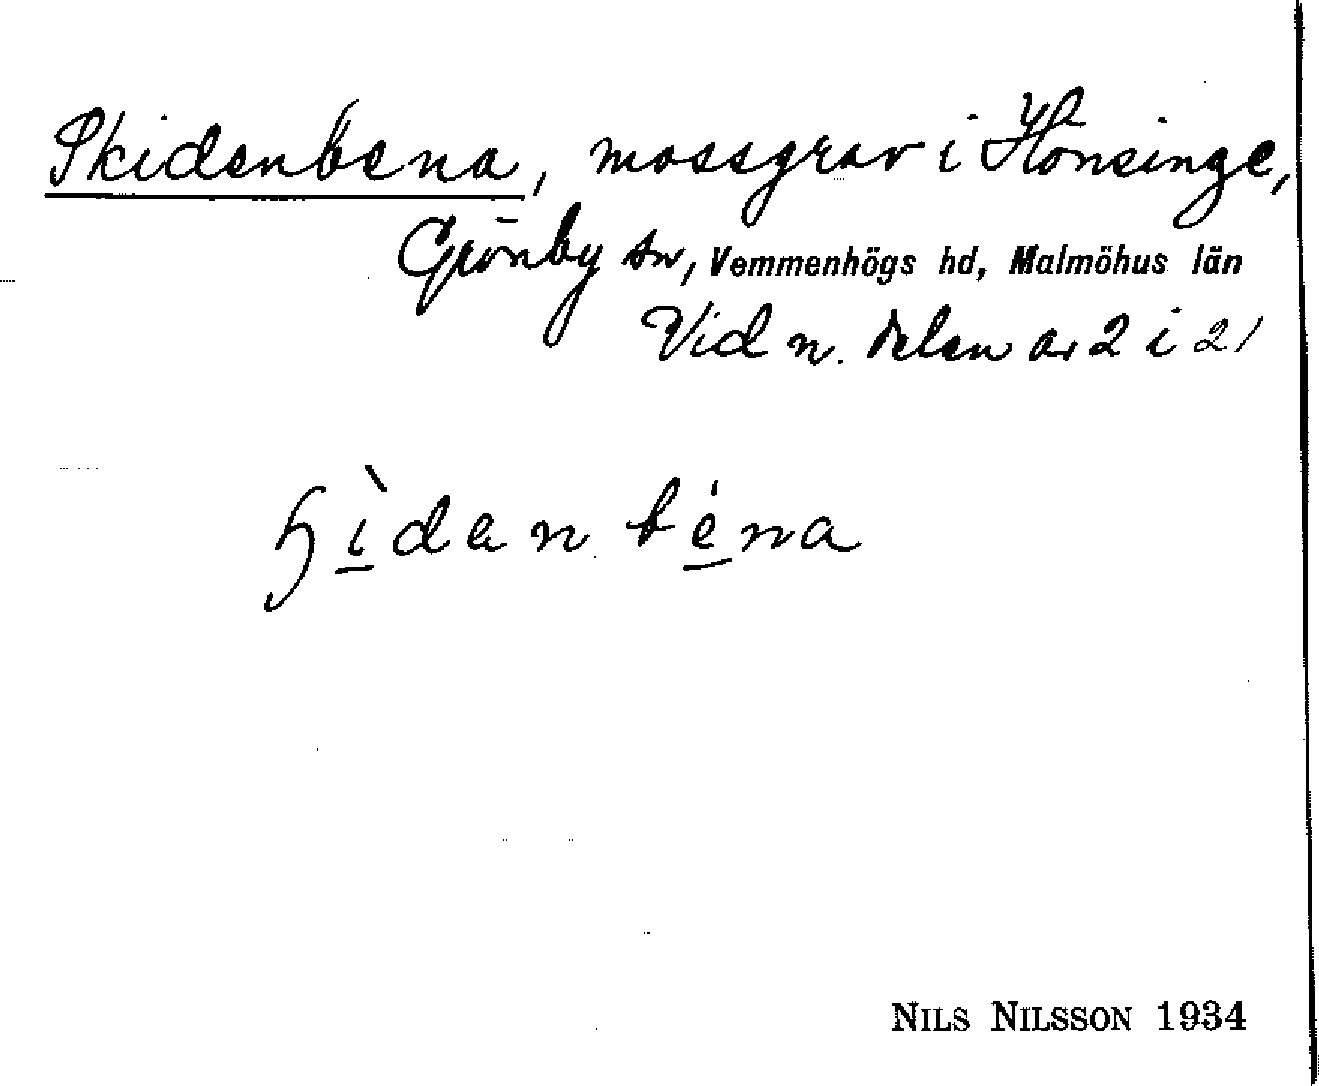 Skidenbena, mossgrav i Hönsinge,
Grönby sn, Vemmenhögs hd, Malmöhus län
Vid n. delen av 2 i 21
ɧìdan béna
NILS NILSSON 1934